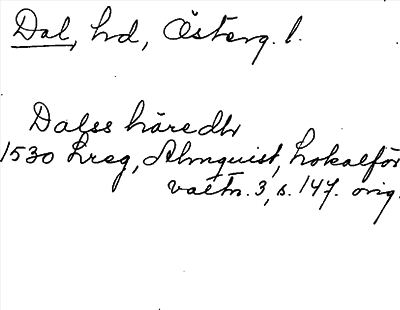 Dal, hd, Österg. l.
Dalss häredh
1530 Lreg, Almquist, Lokalför
valtn. 3, s. 147. orig.